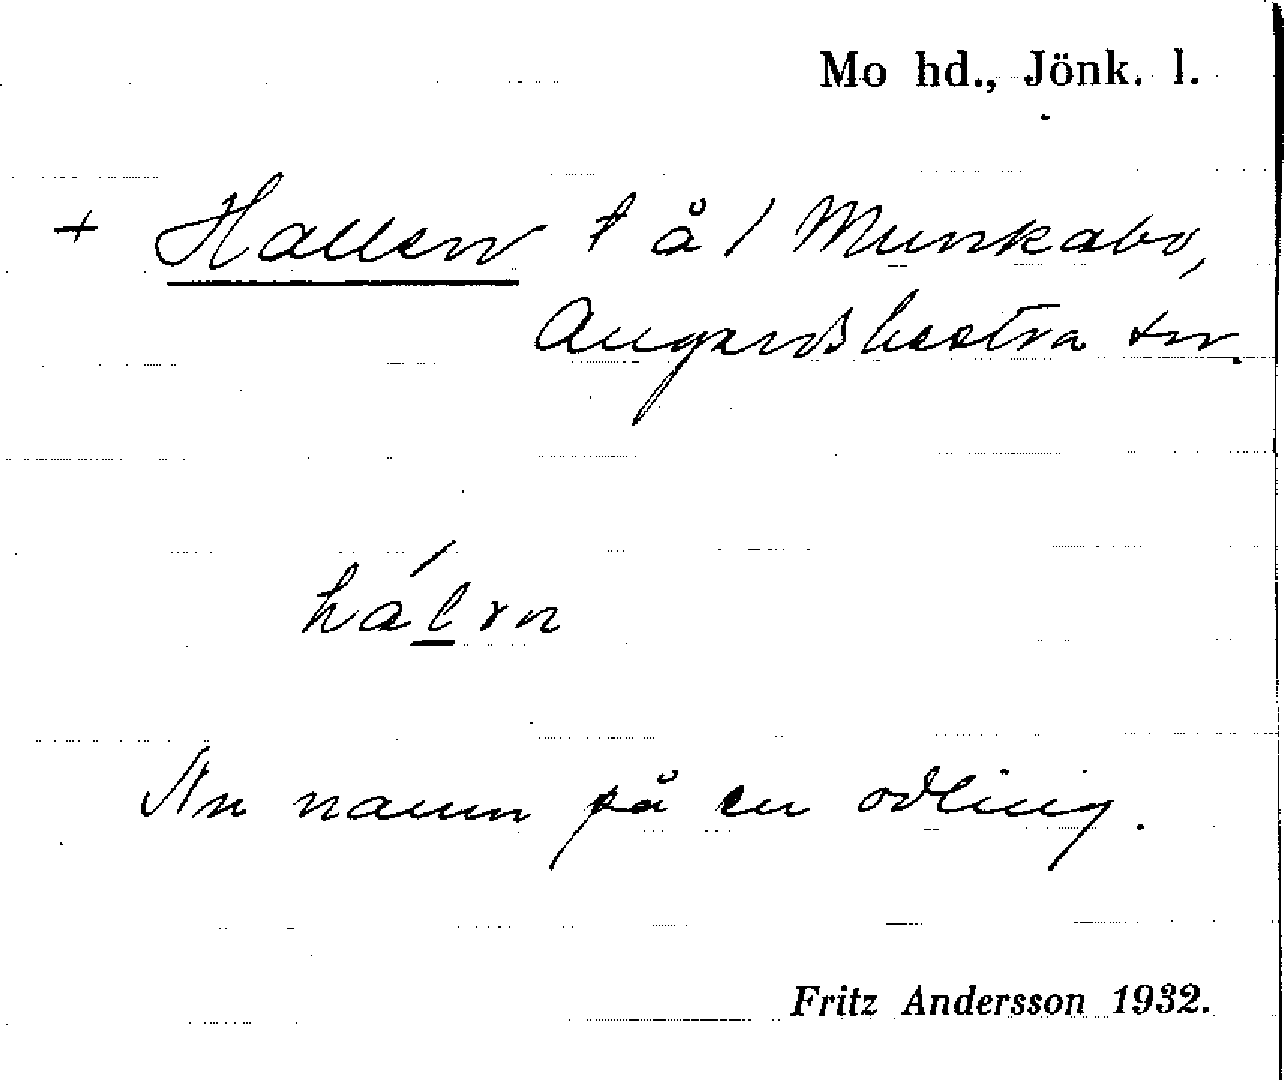 Mo hd., Jönk. l.
+ Hallen t å / Munkabo,
Angerdshestra sn.
hálɤn
Nu namn på en odling.
Fritz Andersson 1932.